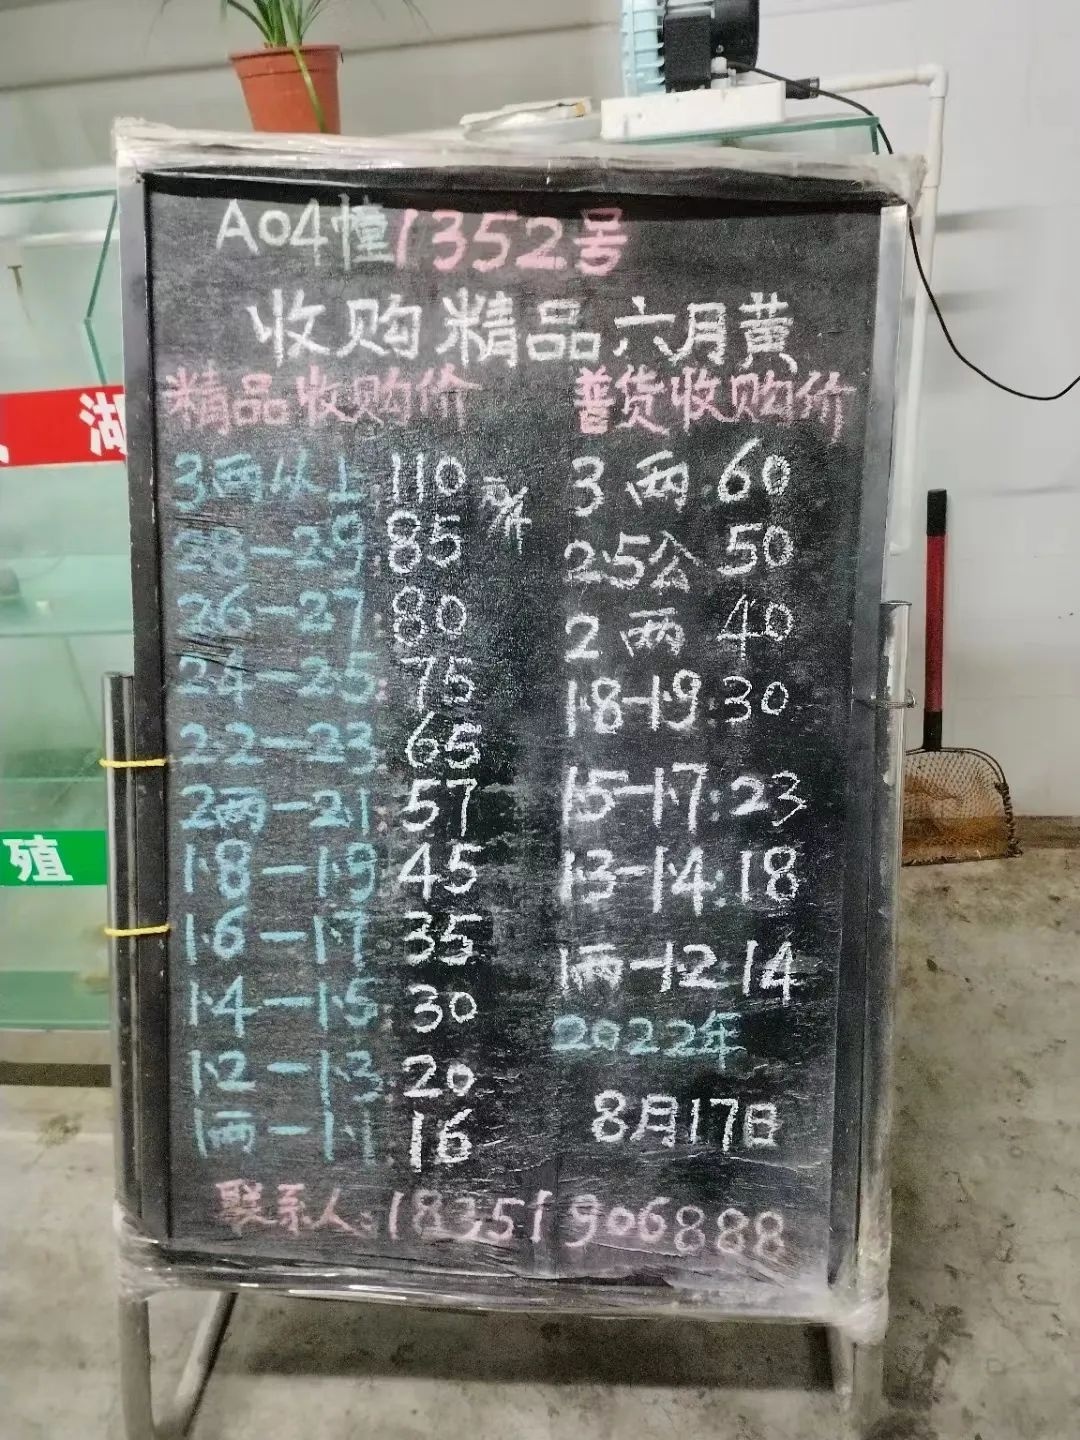 A04幢1352号
收购精品六月黄
精品收购价
3两以上:110元/斤
28-29:85
26-27:80
24-25:75
22-23:65
2两-21:57
1.8-1.9:45
1.6-1.7:35
1.4-1.5:30
1.2-1.3:20
1两-1.1:16
普货收购价
3两:60
2.5公 50
2两 40
1.8-1.9:30
1.5-1.7:23
1.3-1.4:18
1两-1.2 14
2022年
8月17日
联系人:18351906888
湖
殖